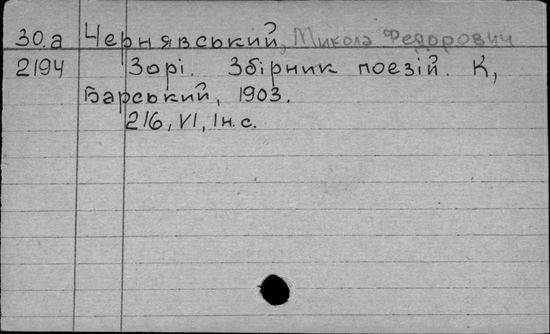 30.а Чернявський, Микола Федорович
2194 Зорі. Збірник поезій. К,
Барський, 1903.
216, VI, Ін. с.